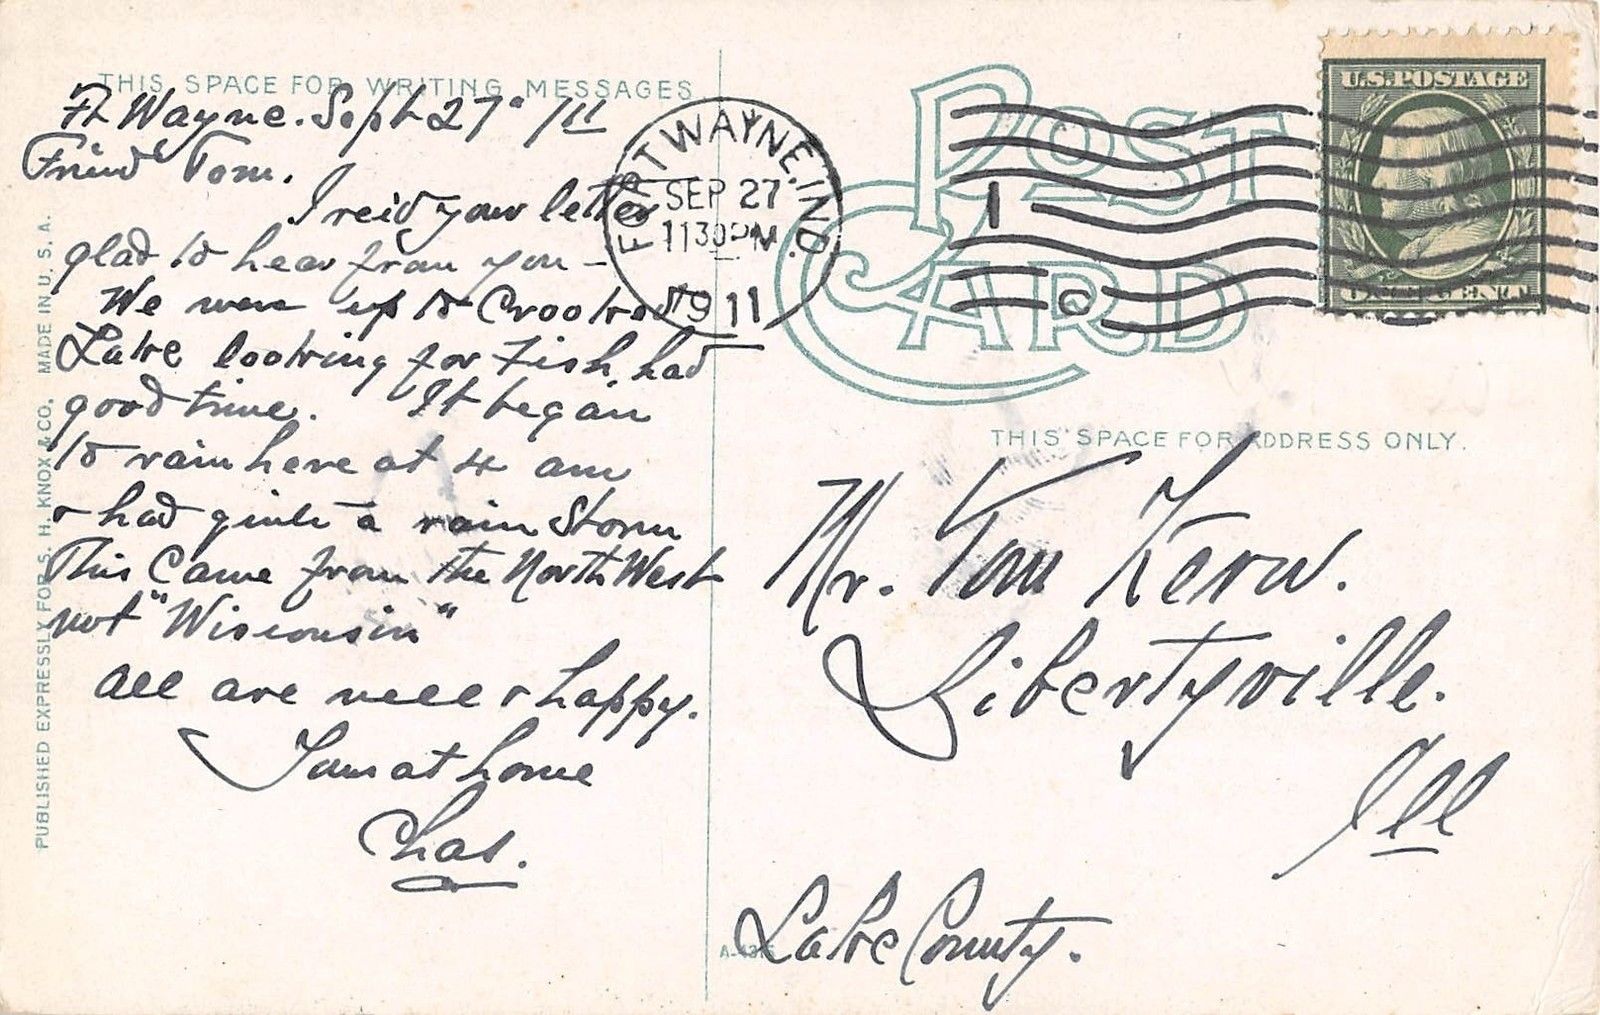 THIS SPACE FOR WRITING MESSAGES
Ft Wayne. Sept 27" /11
Friend Tom.
I rec'd your letter
glad to hear from you -
We were up to Crooked
Lake looking for Fish, had
good time. It began
to rain here at 4 am
& had quite a rain Storm
This Came from the North West
not "Wisconsin"
All are well & happy.
I am at home
Chas.
PUBLISHED EXPRESSLY FOR S. H. KNOX & CO. MADE IN U. S. A.
FORT WAYNE, IND.
SEP 27
1130PM
1911
1
C
POST CARD
U.S. POSTAGE
THIS SPACE FOR ADDRESS ONLY.
Mr. Tom Kerw.
Libertyville.
Ill
Lake County.